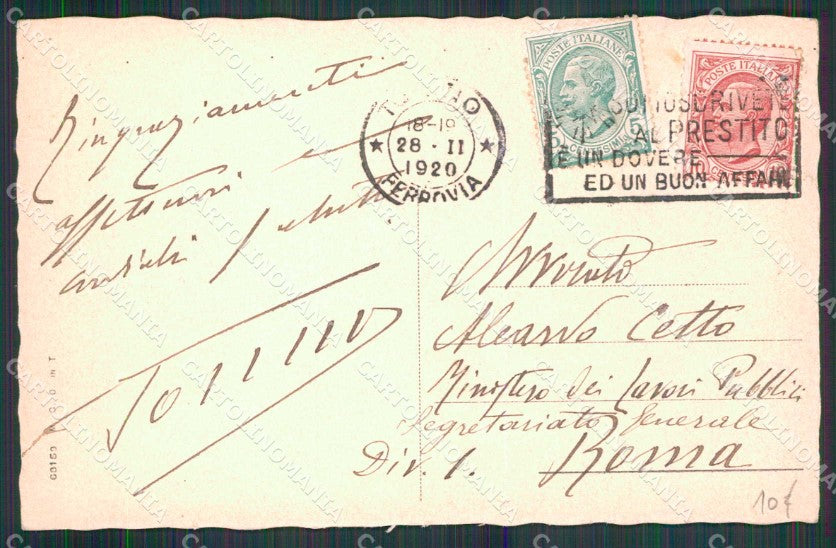 Ringraziamenti
affettuosi
cordiali saluti
18-19
28 · II
1920
FERROVIA
POSTE ITALIANE
CENTESIMI
POSTE ITALIANE
AL PRESTITO
È UN DOVERE
ED UN BUON AFFARE
Avvocato
Alearvo Cetto
Ministero dei Lavori Pubblici
Segretariato Generale
Div. 1.
Roma
10€
CARTOLINOMANIA